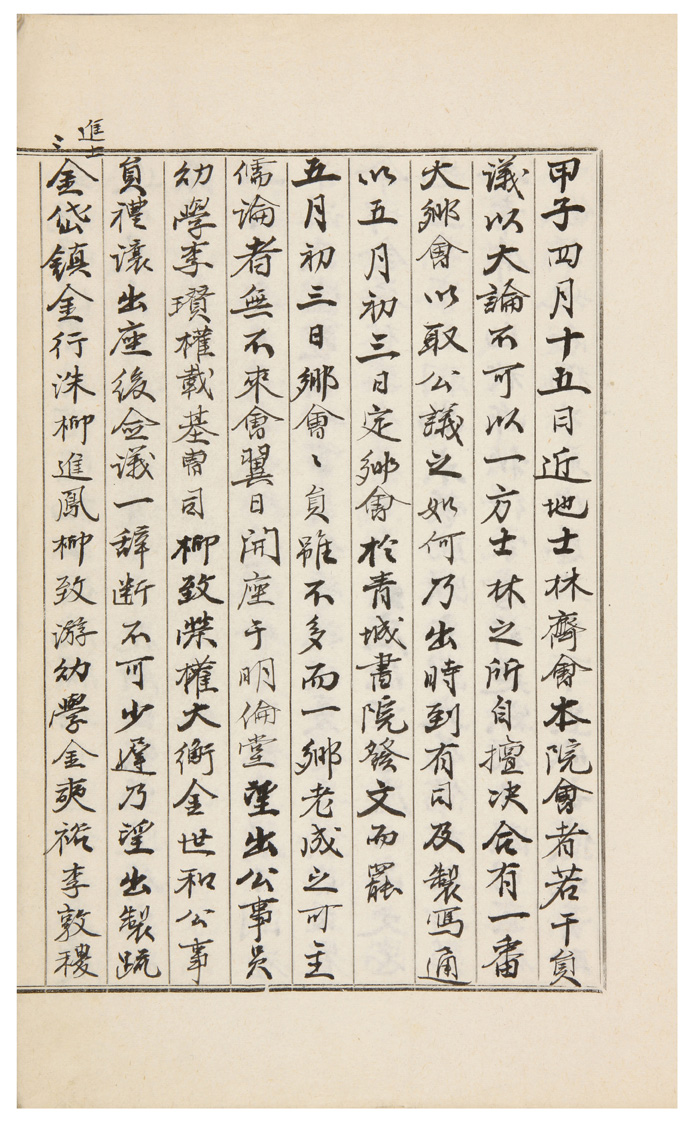 甲子四月十五日近地士林齊會本院會者若干員
議以大論不可以一方士林之所自擅决合有一番
大鄉會以取公議之如何乃出時到有日及製寫通
以五月初三日定鄉會於青城書院發文而罷
五月初三日鄉會〻員雖不多而一鄉老成之可主
儒論者無不來會翼日開座于明倫堂望出公事員
幼學李瓚權載基曹司柳致榮權大衡金世和公事
員禮讓出座後僉議一辞断不可少遲乃望出製䟽
進士
金岱鎮金行洙柳進鳳柳致游幼學金奭裕李敦稷